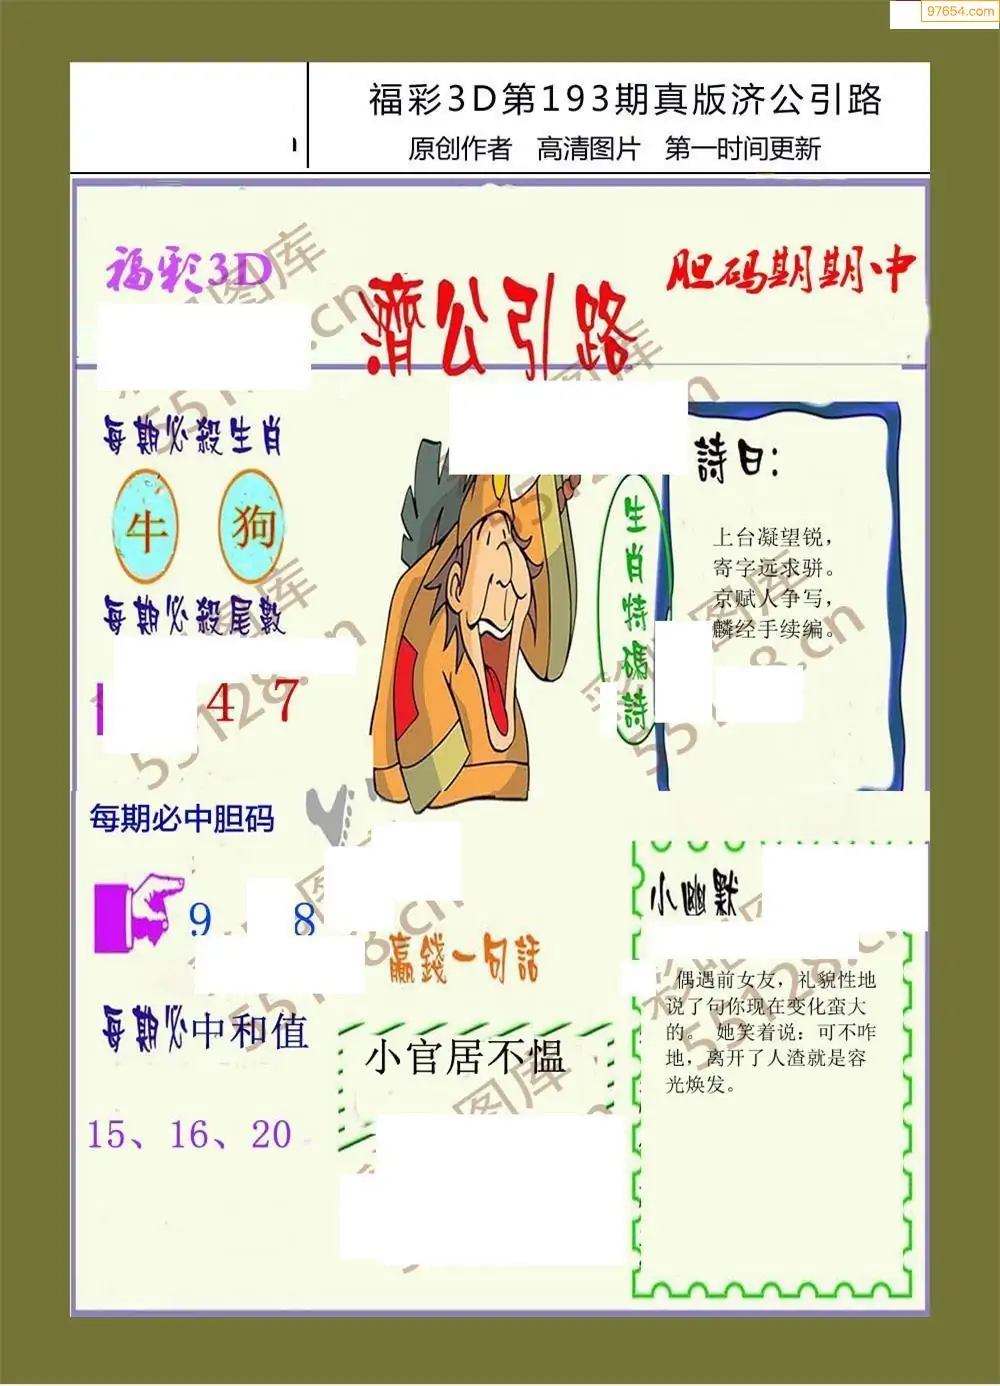 97654.com
福彩3D第193期真版济公引路
原创作者 高清图片 第一时间更新
福彩3D
胆码期期中
濟公引路
每期必殺生肖
牛 狗
每期必殺尾數
4 7
每期必中胆码
9 8
每期必中和值
15、16、20
赢錢一句話
小官居不愠
生肖特碼詩
詩曰:
上台凝望锐,
寄字远求骈。
京赋人争写,
麟经手续编。
小幽默
偶遇前女友,礼貌性地
说了句你现在变化蛮大
的。 她笑着说:可不咋
地,离开了人渣就是容
光焕发。
55128.cn